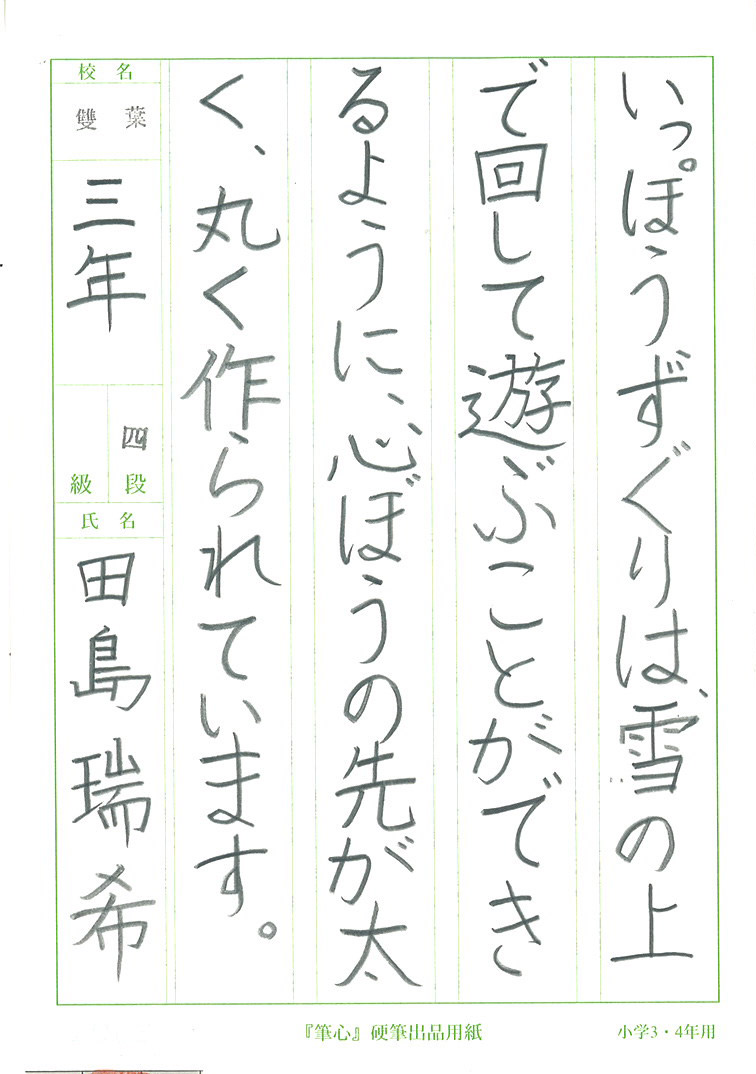 いっぽうずぐりは、雪の上
で回して遊ぶことができ
るように、心ぼうの先が太
く、丸く作られています。
校名
雙葉
三年
四段
級
氏名
田島瑞希
『筆心』硬筆出品用紙
小学3・4年用